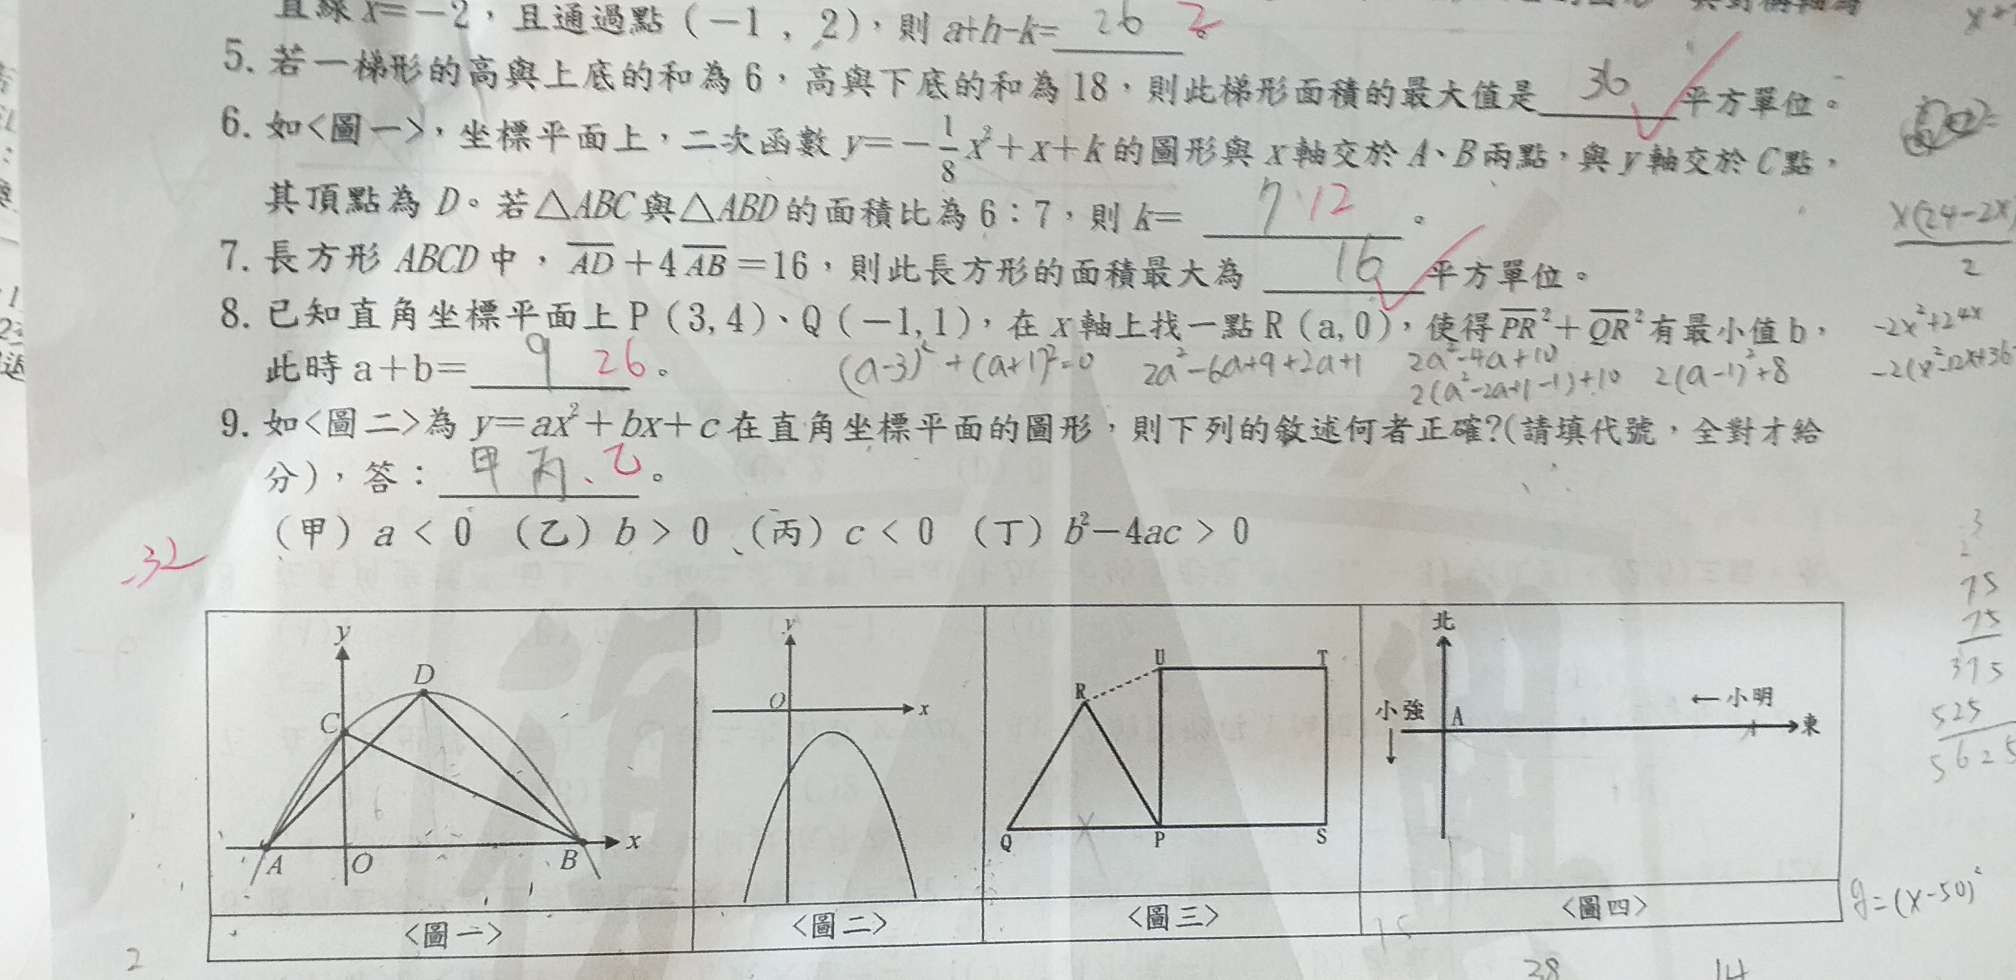 直線 x=-2，且通過點（-1，2），則 a+h-k= 26 2
5. 若一梯形的高與上底的和為 6，高與下底的和為 18，則此梯形面積的最大值是 36 平方單位。
6. 如<圖一>，坐標平面上，二次函數 y=-1/8x²+x+k 的圖形與 x 軸交於 A、B 兩點，與 y 軸交於 C 點，
其頂點為 D。若△ABC 與△ABD 的面積比為 6：7，則 k= 7 12 。
7. 長方形 ABCD 中，AD+4AB=16，則此長方形的面積最大為 16 平方單位。
8. 已知直角坐標平面上 P（3,4）、Q（-1,1），在 x 軸上找一點 R（a,0），使得 PR²+QR² 有最小值 b，
此時 a+b= 9 26 。
(a-3)²+(a+1)²=0 2a²-6a+9+2a+1 2a²-4a+10
2(a²-2a+1-1)+10 2(a-1)²+8
9. 如<圖二>為 y=ax²+bx+c 在直角坐標平面的圖形，則下列的敘述何者正確?(請填代號，全對才給
分)，答： 甲 丙、乙 。
（甲）a < 0 （乙）b > 0 、（丙）c < 0 （丁）b²-4ac > 0
-32
x(24-2x)
2
-2x²+24x
-2(x²-12x+36
3
2
75
75
375
525
5625
y
D
C
A
O
B
x
6
<圖一>
y
O
x
<圖二>
U
T
R
Q
P
S
x
<圖三>
北
小強
A
←小明
東
<圖四>
y=(x-50)²
2
15
38
14